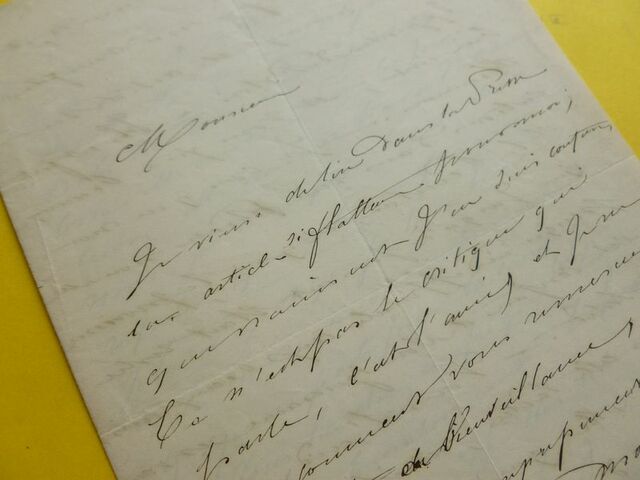 Monsieur
Je viens de lire dans la Presse
un article si flatteur pour moi,
que vraiment j'en suis confuse,
Ce n'est pas le critique qui
parle, c'est l'ami, et je ne
comment vous remercier
de bienveillance,